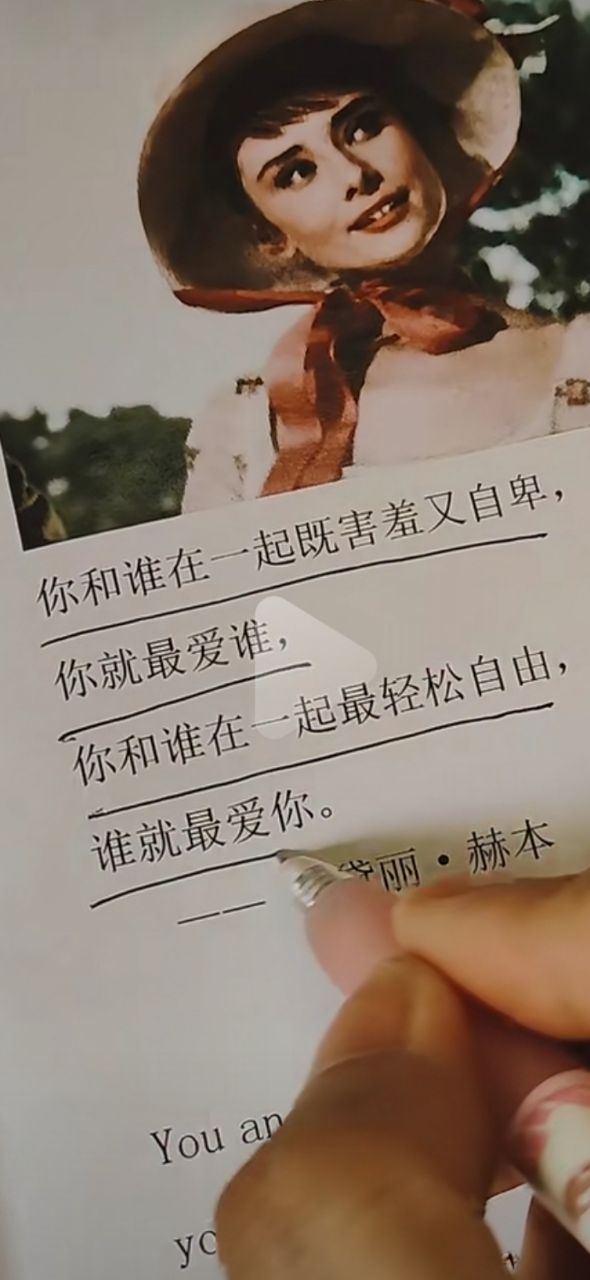 你和谁在一起既害羞又自卑，
你就最爱谁，
你和谁在一起最轻松自由，
谁就最爱你。
——黛丽·赫本
You an
yo